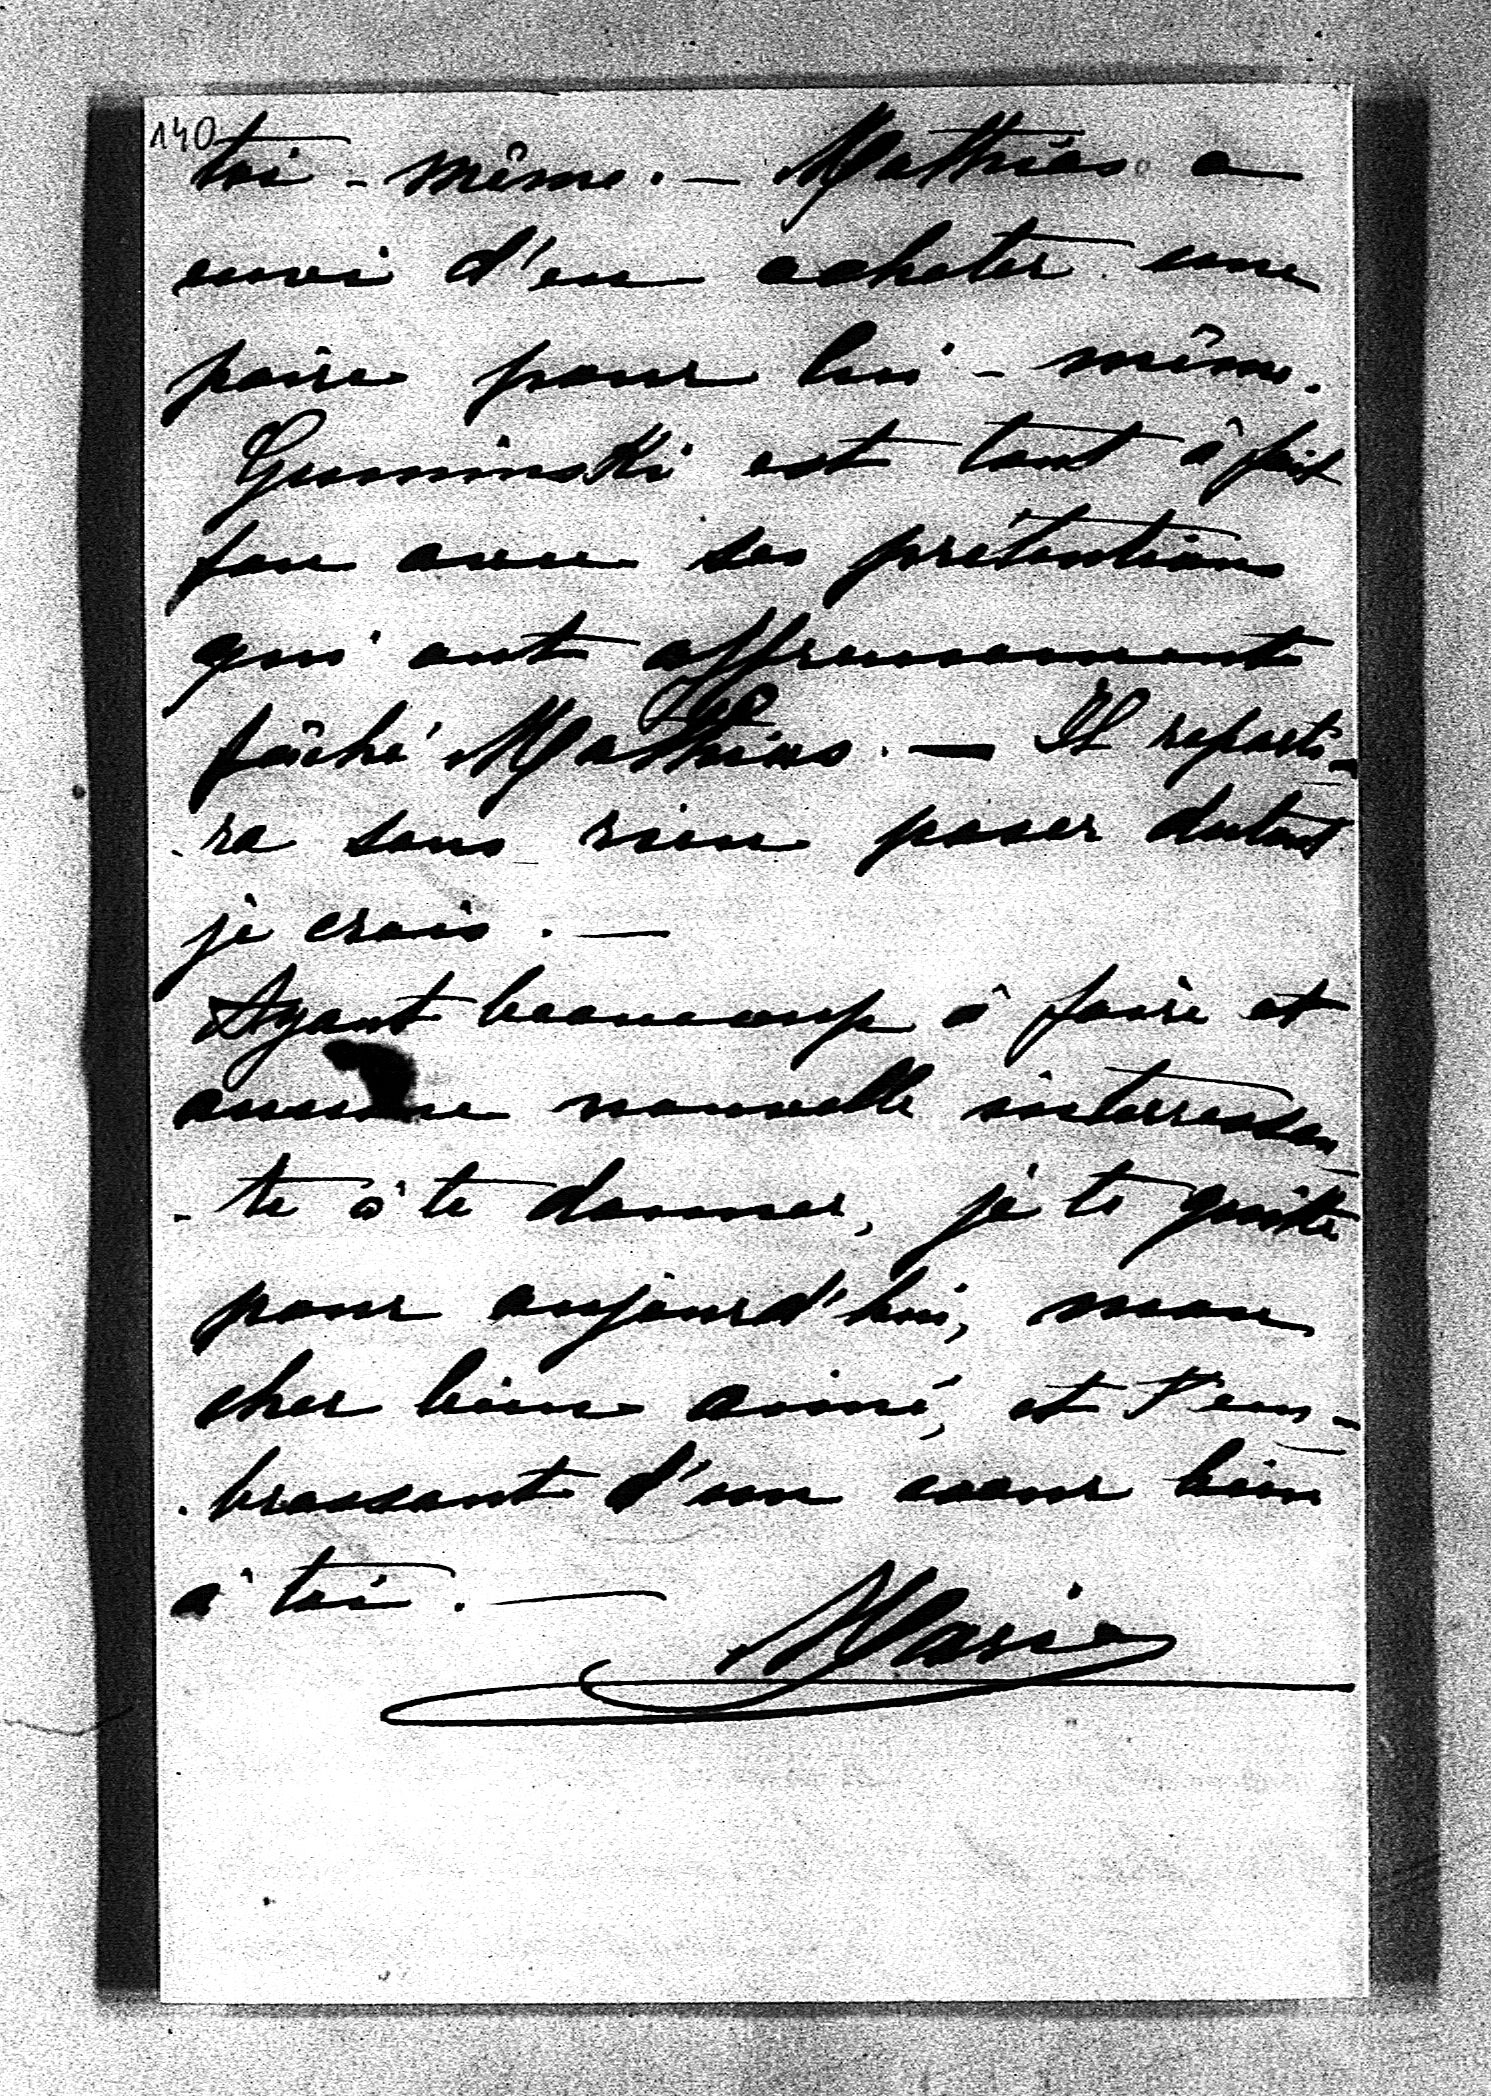 140
toi - même. — Mathias a
envi d'en acheter une
paire pour lui - même.
Guminski est tout à fait
fou avec ses prétentions
qui ont affreusement
fâché Mathias. — Il reparti-
- ra sans rien poser dutout
je crois. —
Ayant beaucoup à faire et
aucune nouvelle interressan
- te à te donner, je te quitte
pour aujourd'hui, mon
cher bien aimé, et t'em-
- brassant d'un coeur bien
à toi. —
Marie